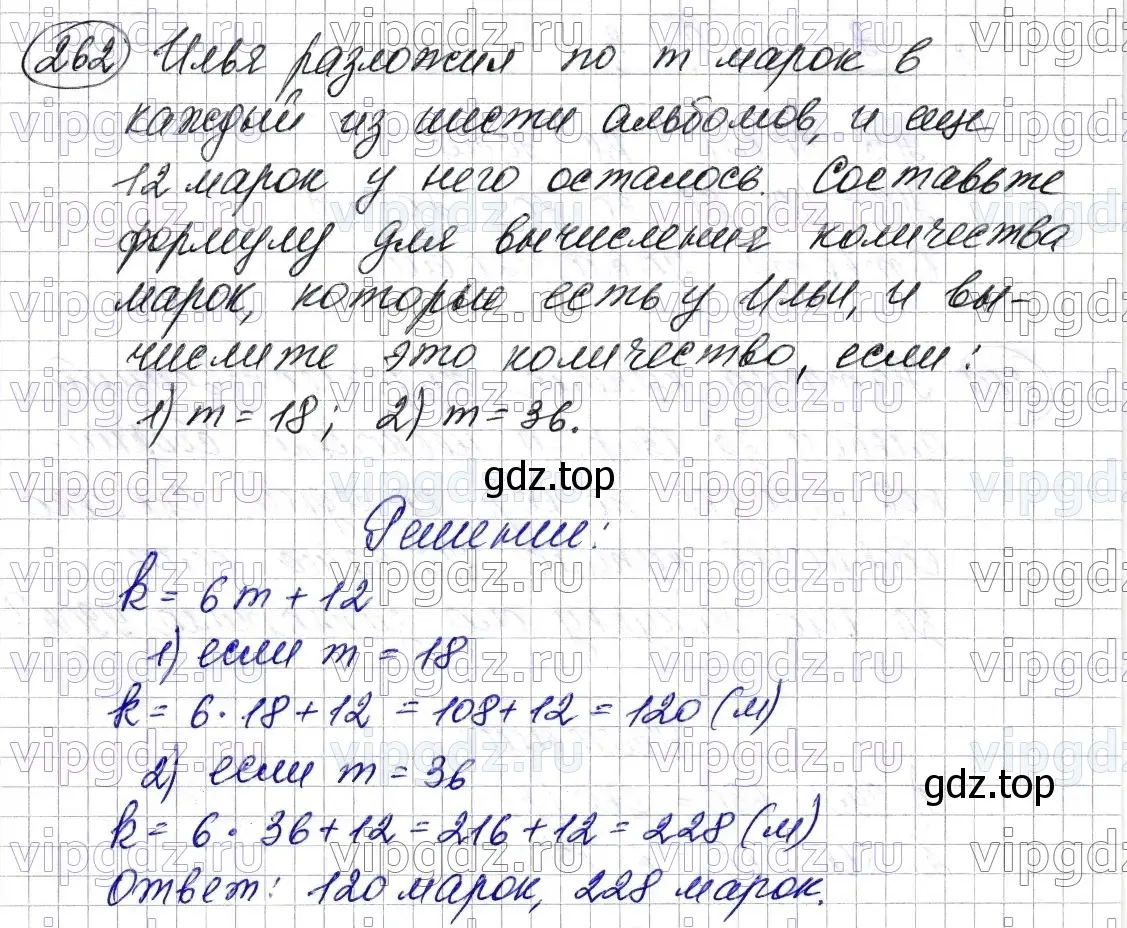 262 Илья разложил по m марок в
каждый из шести альбомов, и еще
12 марок у него осталось. Составьте
формулу для вычисления количества
марок, которые есть у Ильи, и вы-
числите это количество, если:
1) m = 18; 2) m = 36.
gdz.top
Решение:
k = 6m + 12
1) если m = 18
k = 6 · 18 + 12 = 108 + 12 = 120 (м)
2) если m = 36
gdz.top
k = 6 · 36 + 12 = 216 + 12 = 228 (м)
Ответ: 120 марок, 228 марок.
vipgdz.ru